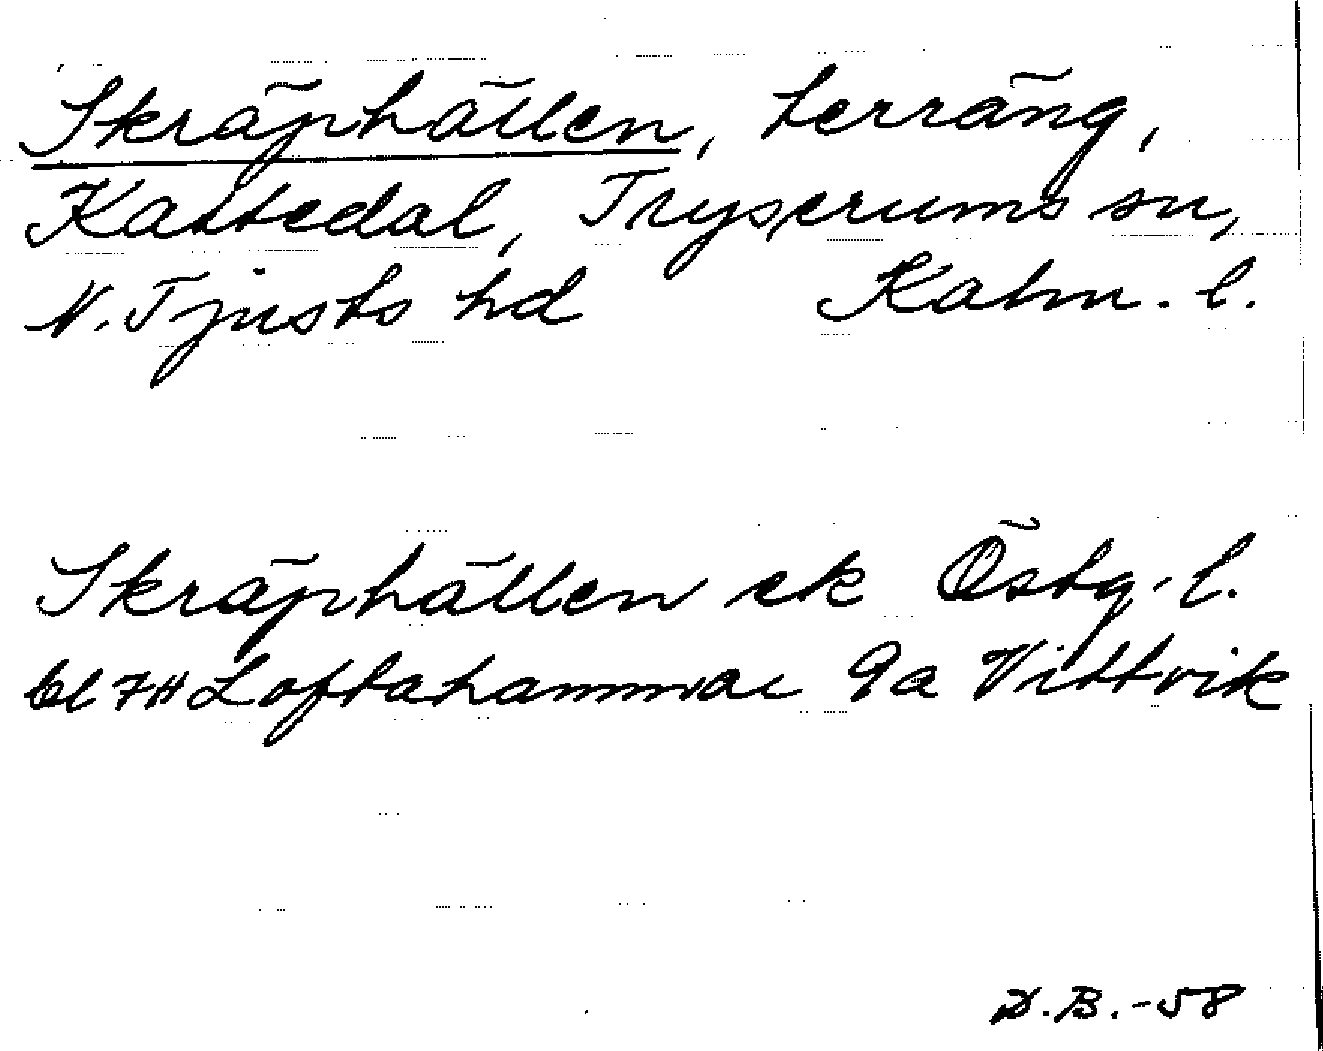 Skräphällen, terräng,
Kattedal, Tryserums sn,
N. Tjusts hd Kalm. l.
Skräphällen ek Östg. l.
bl 7H Loftahammar 9a Vittvik
D.B.-58